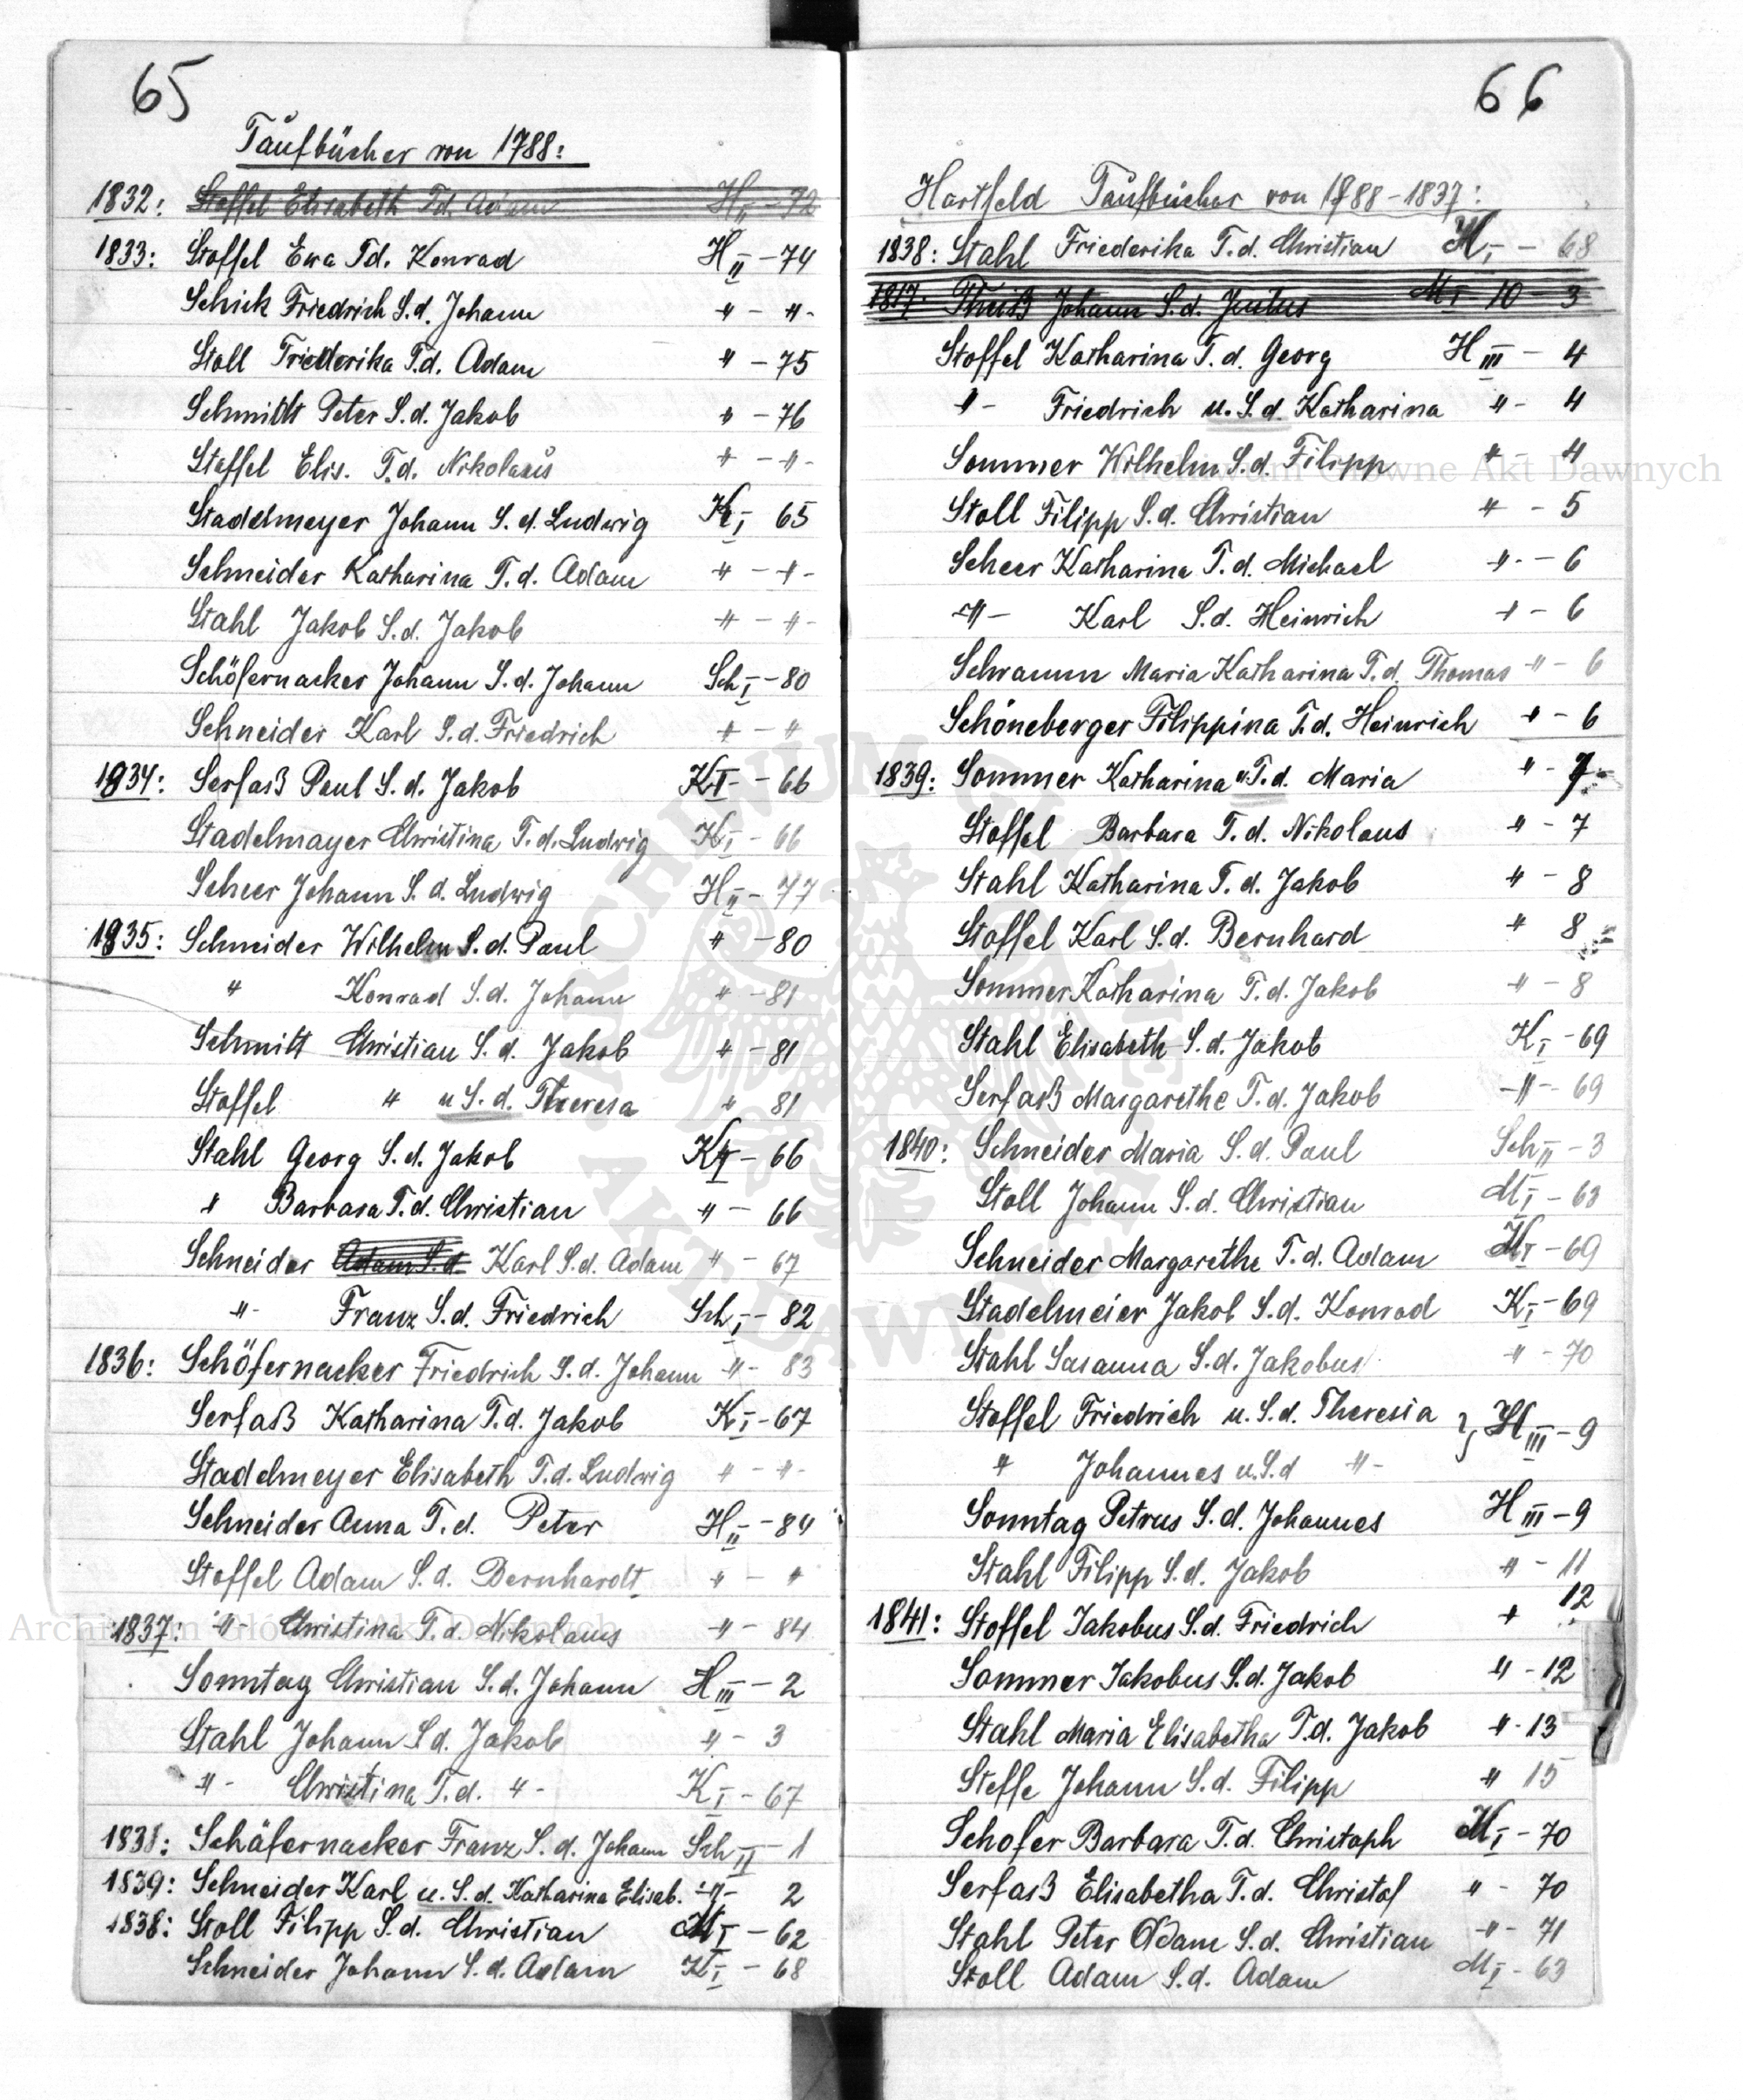 65
Taufbücher von 1788:
1832: Stoffel Elisabeth T.d. Adam H II - 72
1833: Stoffel Ewa Td. Konrad H II - 74
Schick Friedrich S.d. Johann " - " -
Stoll Friederika T.d. Adam " - 75
Schmidt Peter S.d. Jakob " - 76
Stoffel Elis. T.d. Nikolaus " - " -
Stadelmeyer Johann S.d. Ludwig K I - 65
Schneider Katharina T.d. Adam " - " -
Stahl Jakob S.d. Jakob " - " -
Schöfernacker Johann S.d. Johann Sch I - 80
Schneider Karl S.d. Friedrich " - "
1834: Serfaß Paul S.d. Jakob K I - 66
Stadelmayer Christina T.d. Ludwig K I - 66
Scheer Johann S.d. Ludwig H II - 77
1835: Schneider Wilhelm S.d. Paul " - 80
" Konrad S.d. Johann " - 81
Schmitt Christian S.d. Jakob " - 81
Stoffel " u S.d. Theresa " 81
Stahl Georg S.d. Jakob K I - 66
" Barbara T.d. Christian " - 66
Schneider Adam S.d. Karl S.d. Adam " - 67
" - Franz S.d. Friedrich Sch I - 82
1836: Schöfernacker Friedrich S.d. Johann " - 83
Serfaß Katharina T.d. Jakob K I - 67
Stadelmeyer Elisabeth T.d. Ludwig " - " -
Schneider Anna T.d. Peter H II - 84
Stoffel Adam S.d. Bernhardt " - "
1837: " - Christina T.d. Nikolaus " - 84
Sonntag Christian S.d. Johann H III - 2
Stahl Johann S.d. Jakob " - 3
" - Christina T.d. " - K I - 67
1838: Schäfernacker Franz S.d. Johann Sch II - 1
1839: Schneider Karl u. S.d. Katharina Elisab. - " - 2
1838: Stoll Filipp S.d. Christian M I - 62
Schneider Johann S.d. Adam K I - 68
66
Hartfeld Taufbücher von 1788 - 1837:
1838: Stahl Friederika T.d. Christian K I - 68
1817. Theiß Johann S.d. Justus M I 10 - 3
Stoffel Katharina T.d. Georg H III - 4
" - Friedrich u. S.d. Katharina " - 4
Sommer Wilhelm S.d. Filipp " - 4
Stoll Filipp S.d. Christian " - 5
Scheer Katharina T.d. Michael " - 6
- " - Karl S.d. Heinrich " - 6
Schramm Maria Katharina T.d. Thomas " - 6
Schöneberger Filippina T.d. Heinrich " - 6
1839: Sommer Katharina u. T.d. Maria " - 7
Stoffel Barbara T.d. Nikolaus " - 7
Stahl Katharina T.d. Jakob " - 8
Stoffel Karl S.d. Bernhard " 8
Sommer Katharina T.d. Jakob " - 8
Stahl Elisabeth S.d. Jakob K I - 69
Serfaß Margarethe T.d. Jakob - " - 69
1840: Schneider Maria S.d. Paul Sch II - 3
Stoll Johann S.d. Christian M I - 63
Schneider Margarethe T.d. Adam K I - 69
Stadelmeier Jakob S.d. Konrad K I - 69
Stahl Susanna S.d. Jakobus " - 70
Stoffel Friedrich u. S.d. Theresia } H III - 9
" Johannes u. S.d " -
Sonntag Petrus S.d. Johannes H III - 9
Stahl Filipp S.d. Jakob " - 11
1841: Stoffel Jakobus S.d. Friedrich " 12
Sommer Jakobus S.d. Jakob " - 12
Stahl Maria Elisabetha T.d. Jakob " - 13
Steffe Johann S.d. Filipp " 15
Schofer Barbara T.d. Christoph K I - 70
Serfaß Elisabetha T.d. Christof " - 70
Stahl Peter Adam S.d. Christian - " - 71
Stoll Adam S.d. Adam M I - 63
Archiwum Główne Akt Dawnych
Archiwum Główne Akt Dawnych
ARCHIWUM GŁÓWNE
AKT DAWNYCH